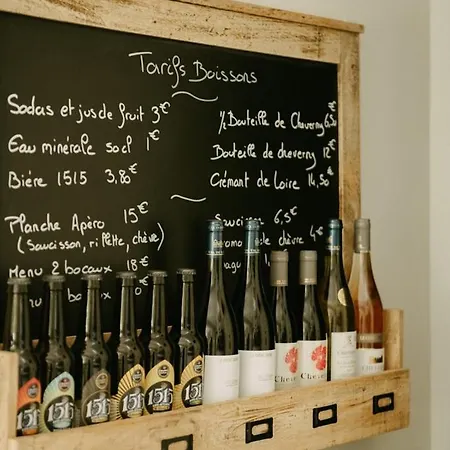 Tarifs Boissons
Sodas et jus de fruit 3€
Eau minérale 50cl 1€
Bière 1515 3,80€
Planche Apéro 15€
(Saucisson, rillette, chèvre)
Menu 2 bocaux 18€
½ Bouteille de Cheverny 6,50€
Bouteille de cheverny 12€
Crémant de Loire 14,50€
Saucisson 6,5€
de chèvre 4€
151
1515
151
1515
1515
151
Chev
Chev